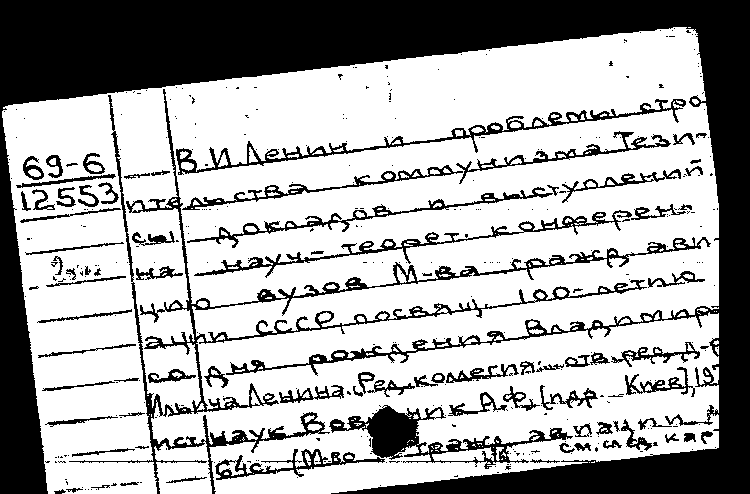 69-6
12553
В.И.Ленин и проблемы стро-
ительства коммунизма. Тези-
сы докладов и выступлений
на науч.- теорет. конферен-
цию вузов М-ва гражд. ави-
ации СССР, посвящ. 100-летию
со дня рождения Владимира
Ильича Ленина. [Ред. коллегия: отв. ред. д-р
ист. наук А.Ф. [и др. Киев], 197
64с. (М-во гражд. авиации
см. след. кар